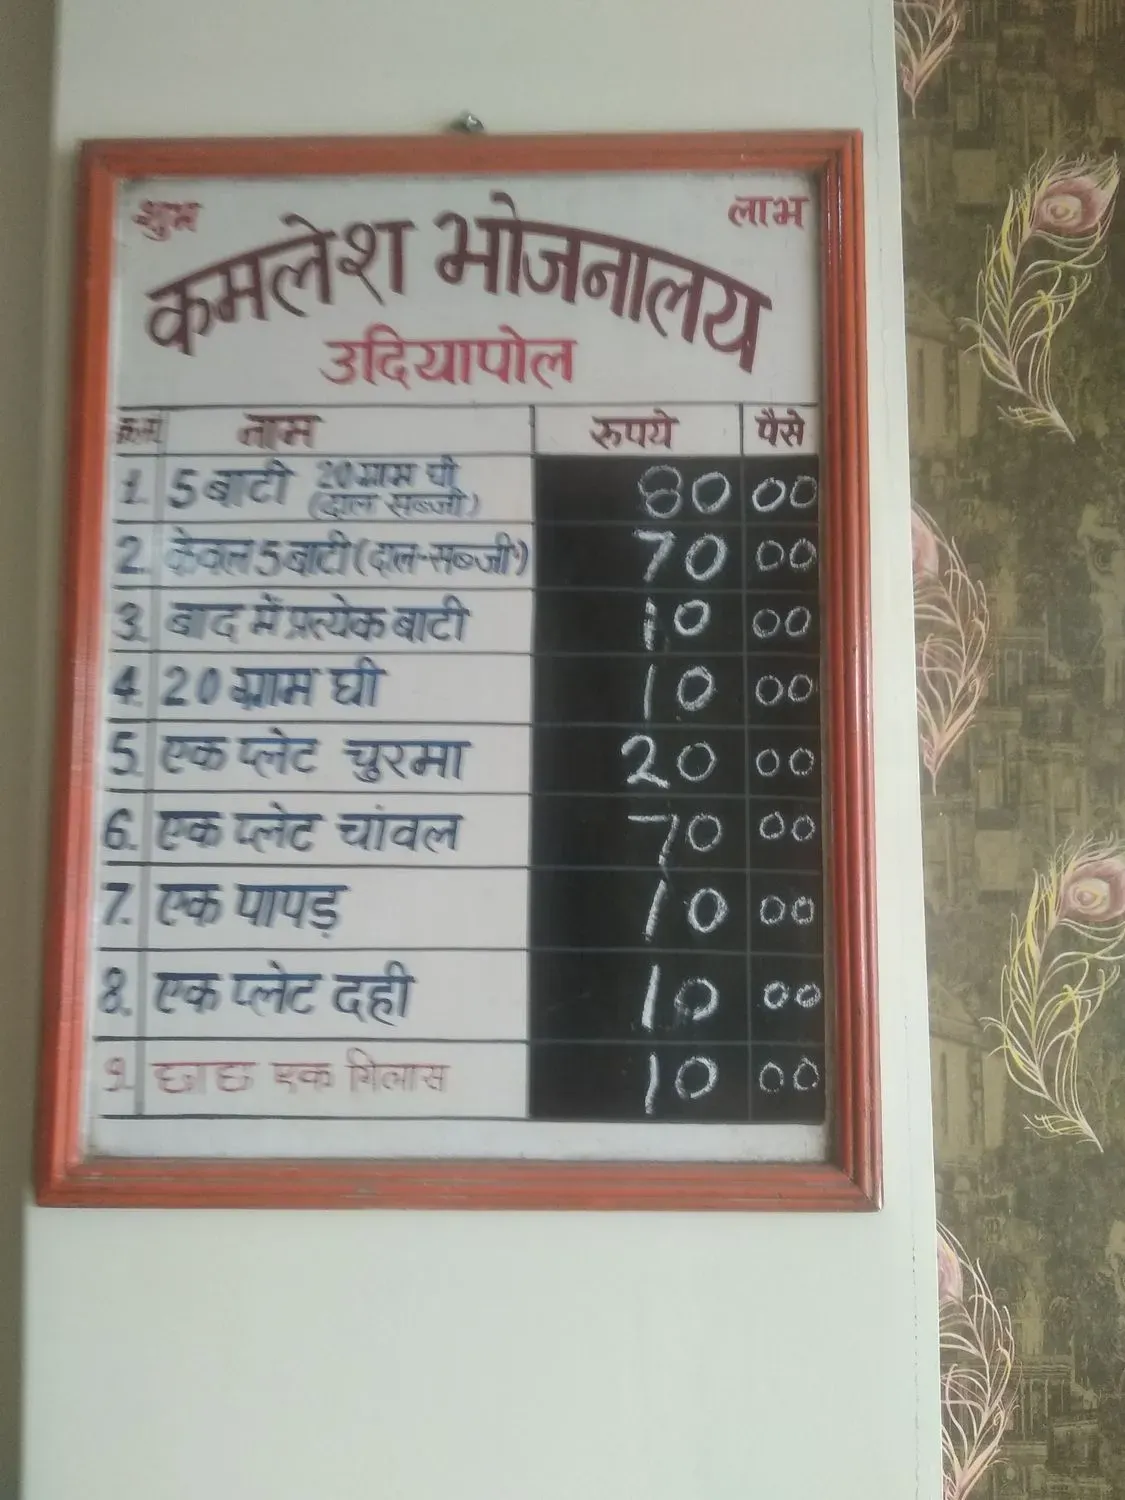 शुभ लाभ
कमलेश भोजनालय
उदियापोल
क्र.सं. नाम रुपये पैसे
1. 5 बाटी 20 ग्राम घी (दाल सब्जी) 80 00
2. केवल 5 बाटी (दाल-सब्जी) 70 00
3. बाद में प्रत्येक बाटी 10 00
4. 20 ग्राम घी 10 00
5. एक प्लेट चुरमा 20 00
6. एक प्लेट चांवल 70 00
7. एक पापड़ 10 00
8. एक प्लेट दही 10 00
9. छाछ एक गिलास 10 00